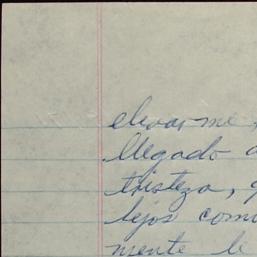 elevarme
llegado a
tristeza, q
lejos com
mente le